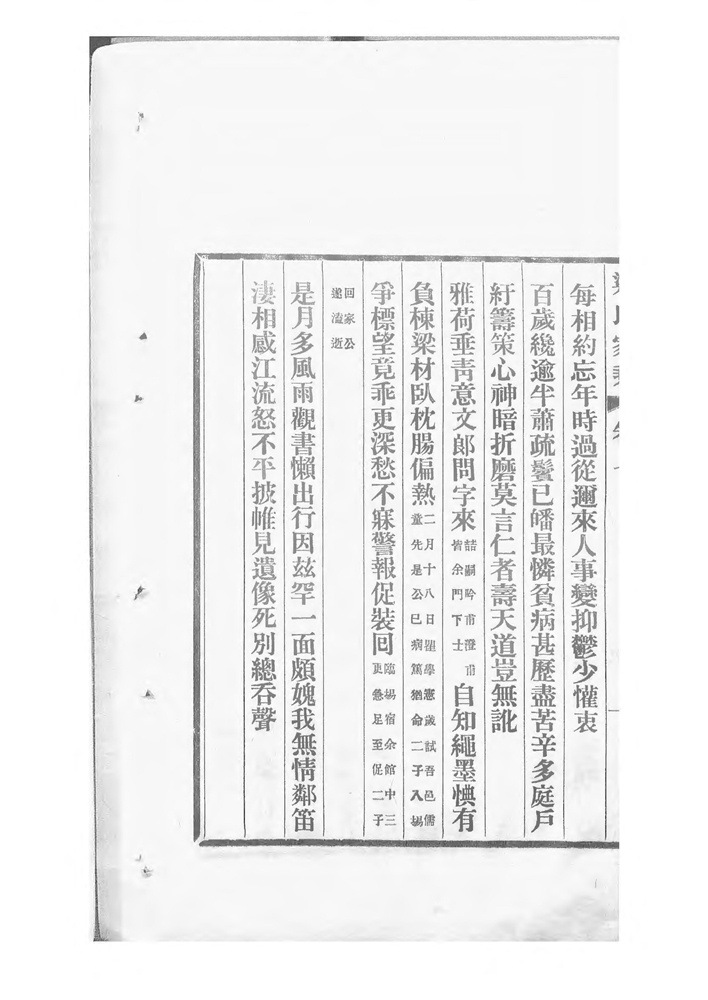 每相約忘年時過從邇來人事變抑鬱少懽衷
百歲纔逾半蕭疏鬢已皤最憐貧病甚歷盡苦辛多庭戶
紆籌策心神暗折磨莫言仁者壽天道豈無訛
雅荷垂靑意文郎問字來
喆嗣吟甫澄甫
皆余門下士
自知繩墨愧有
負棟梁材臥枕腸偏熱
二月十八日瞿學憲歲試吾邑儒
童先是公已病篤猶命二子入場
爭標望竟乖更深愁不寐警報促裝回
臨場宿余館中三
更急足至促二子
回家公
遽溘逝
是月多風雨觀書懶出行因玆罕一面頗媿我無情鄰笛
淒相感江流怒不平披帷見遺像死別總吞聲